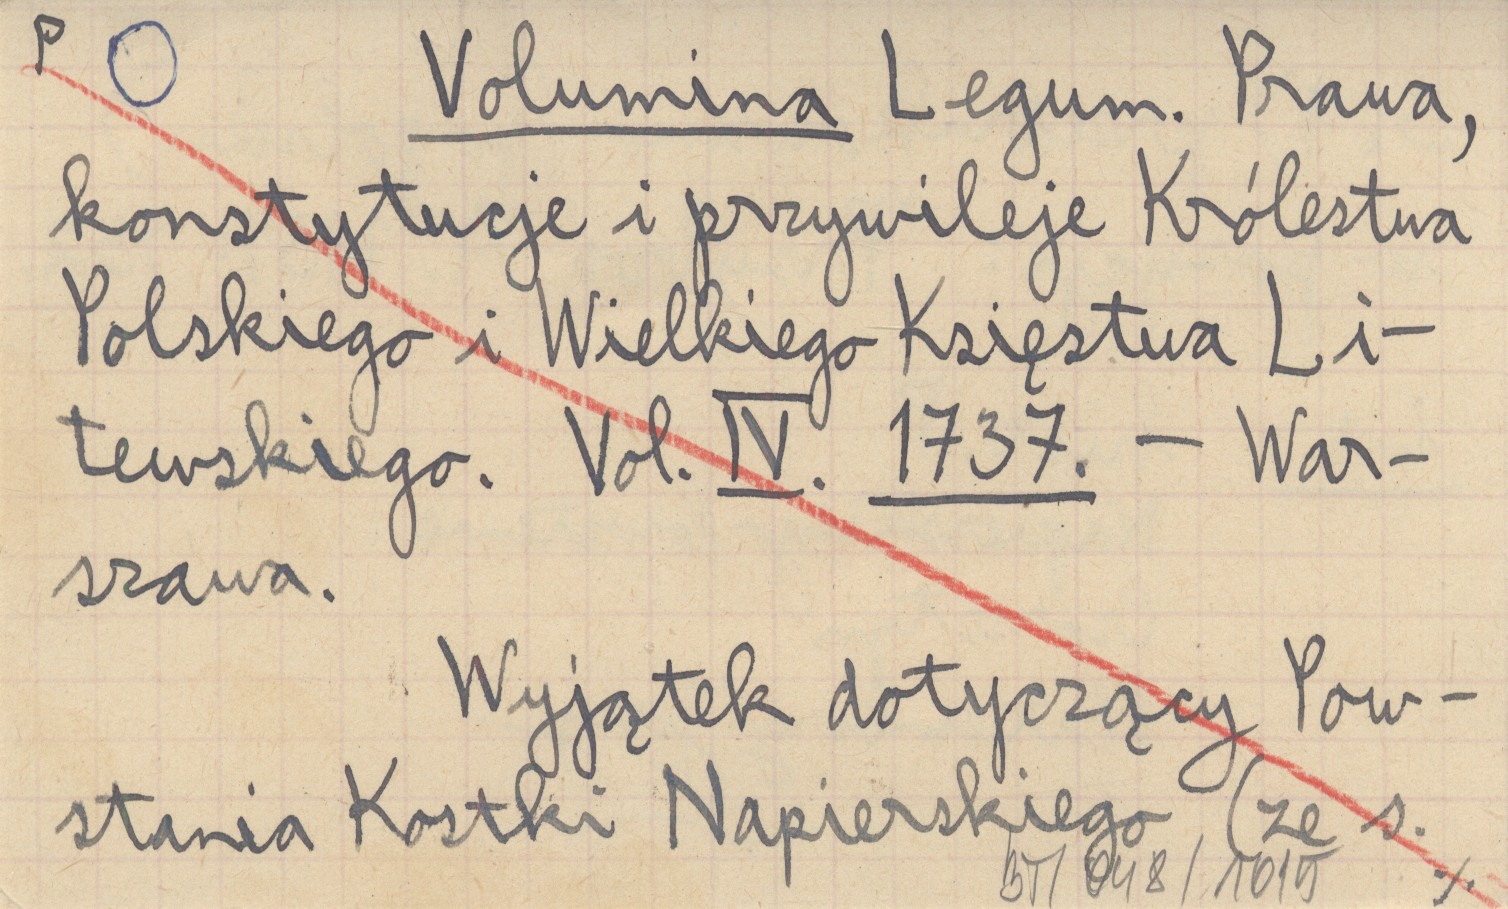 P Volumina Legum. Prawa,
konstytucje i przywileje Królestwa
Polskiego i Wielkiego Księstwa Li-
tewskiego. Vol. IV. 1737. — War-
szawa.
Wyjątek dotyczący Pow-
stania Kostki Napierskiego (ze s.
BT/048/1019 ./.